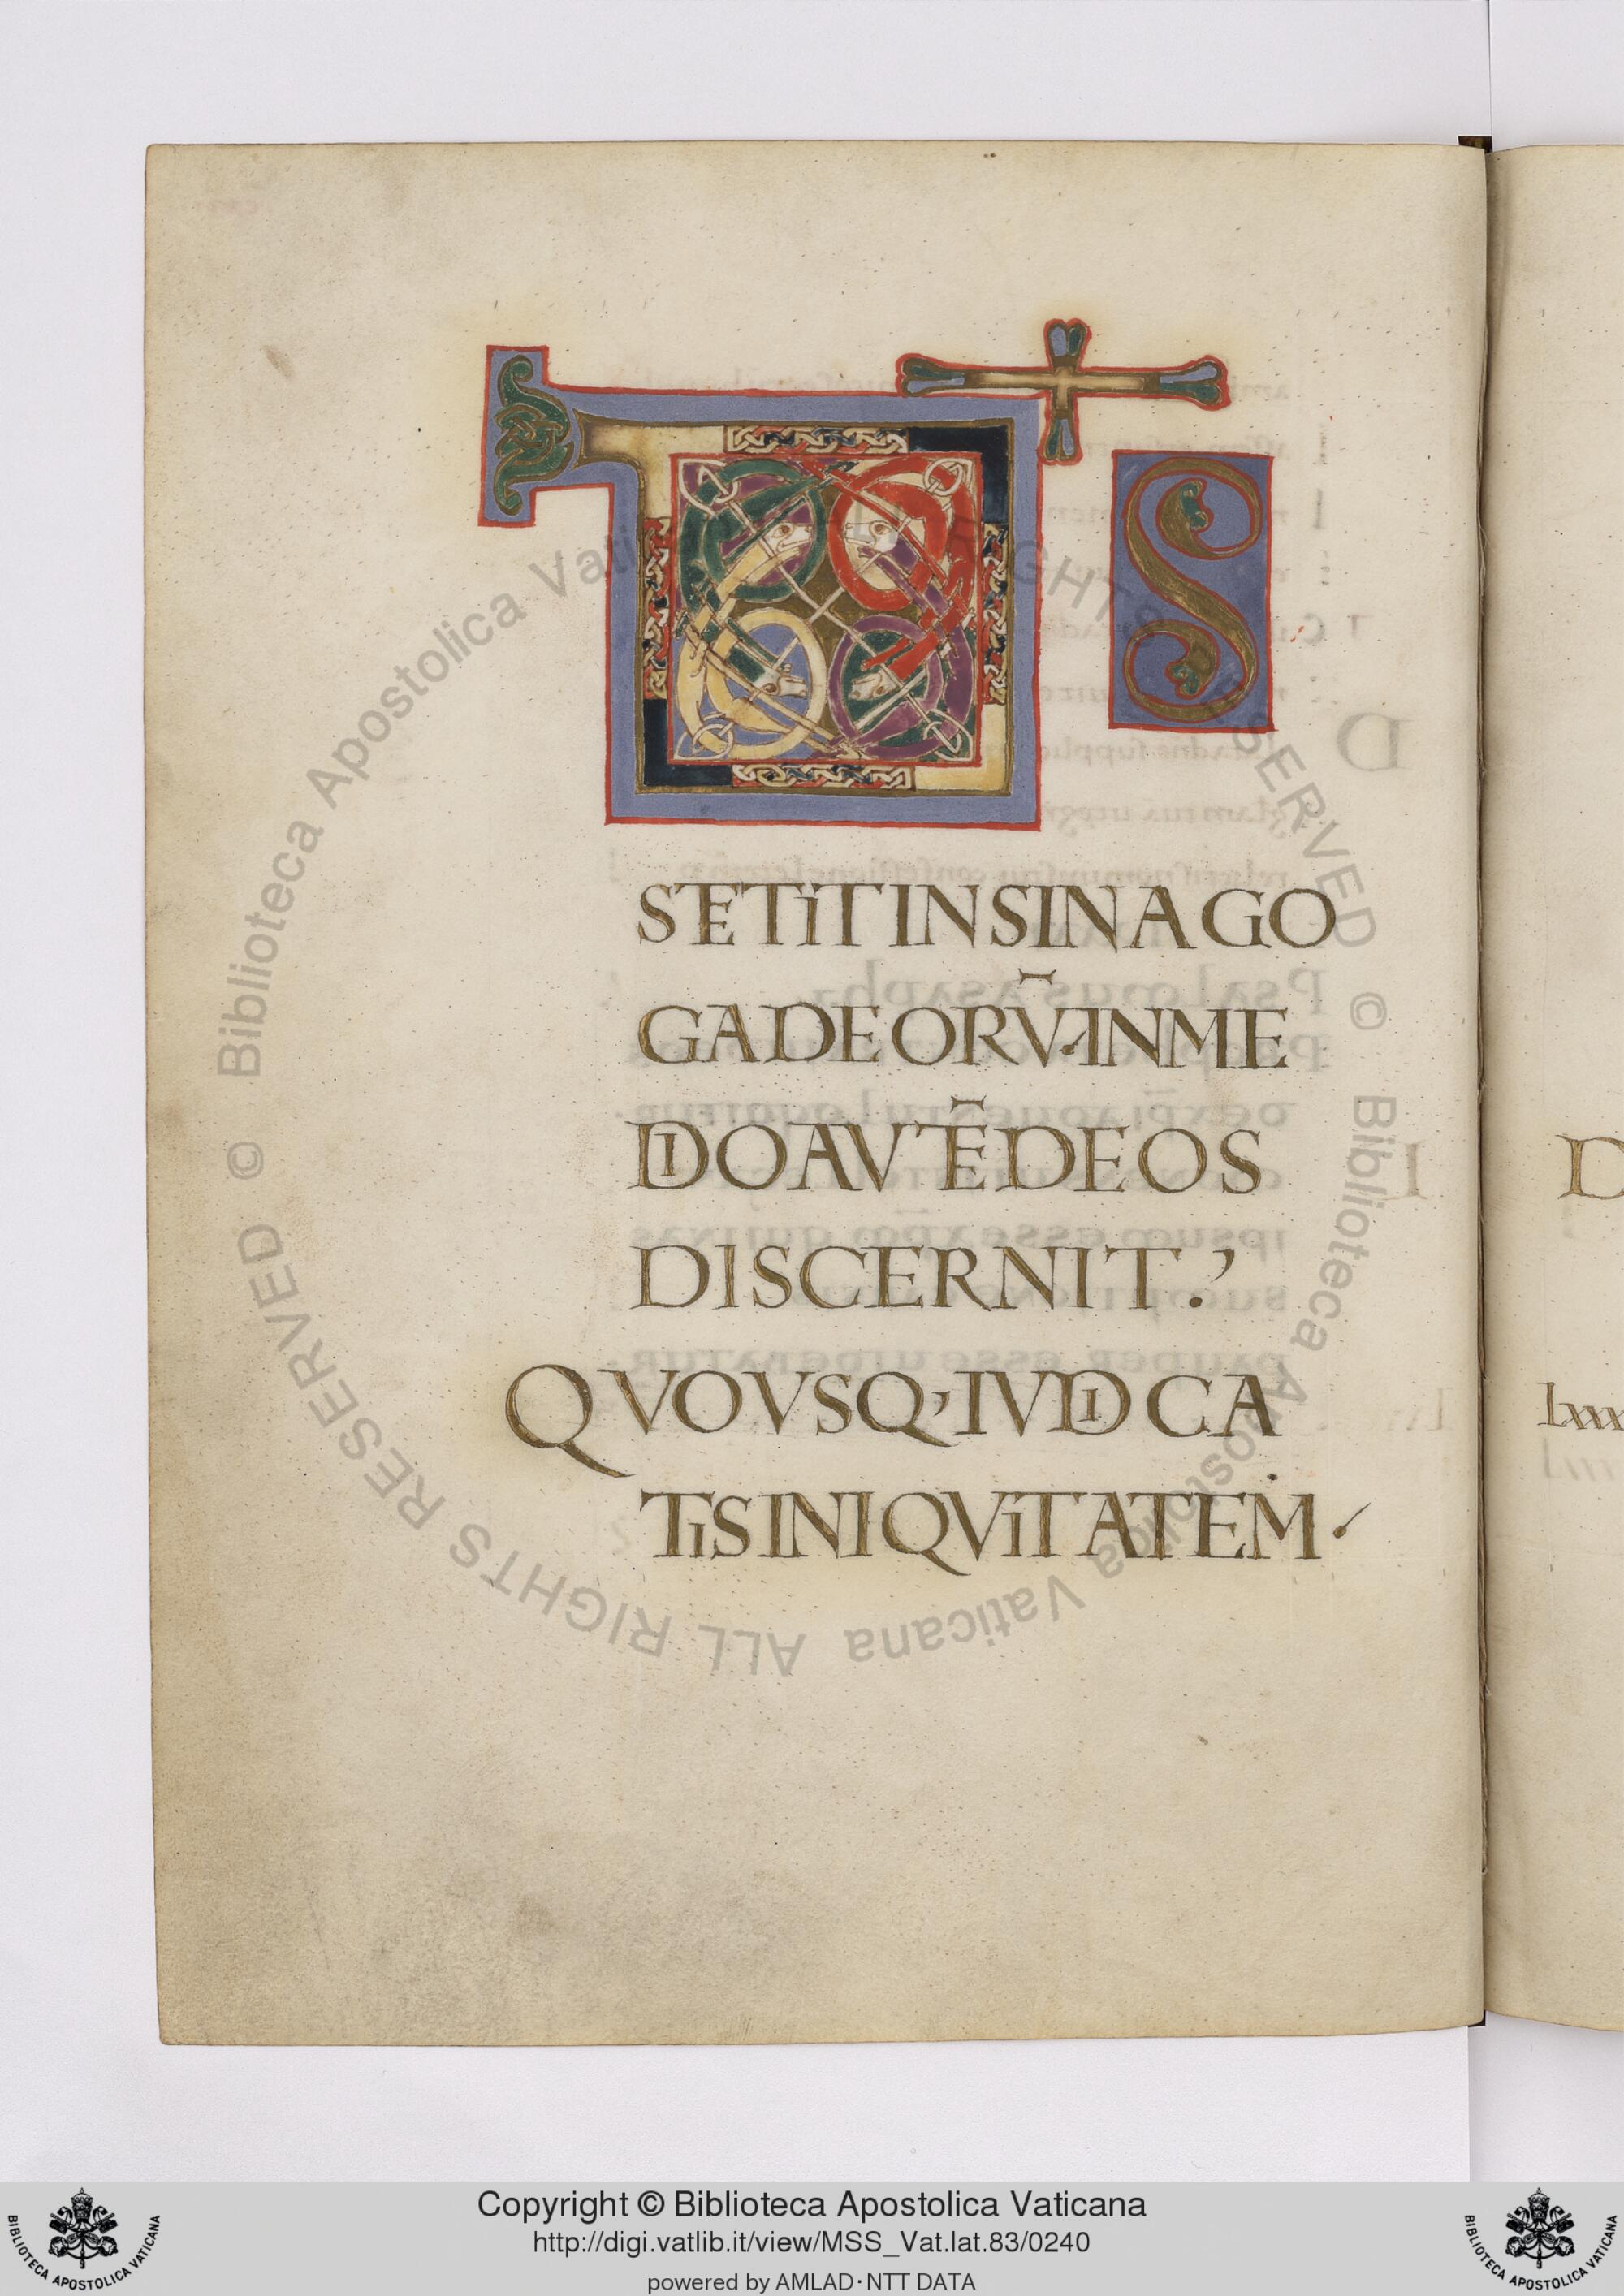 D̄S
SETIT IN SINAGO
GA DEORV̄· IN ME
DIO AVTĒ DEOS
DISCERNIT.'
QVOVSQ, IVDICA
TIS INIQVITATEM·
D
Lxxx
Copyright © Biblioteca Apostolica Vaticana
http://digi.vatlib.it/view/MSS_Vat.lat.83/0240
powered by AMLAD·NTT DATA
BIBLIOTECA APOSTOLICA VATICANA
BIBLIOTECA APOSTOLICA VATICANA
© Biblioteca Apostolica Vaticana ALL RIGHTS RESERVED
© Biblioteca Apostolica Vaticana ALL RIGHTS RESERVED